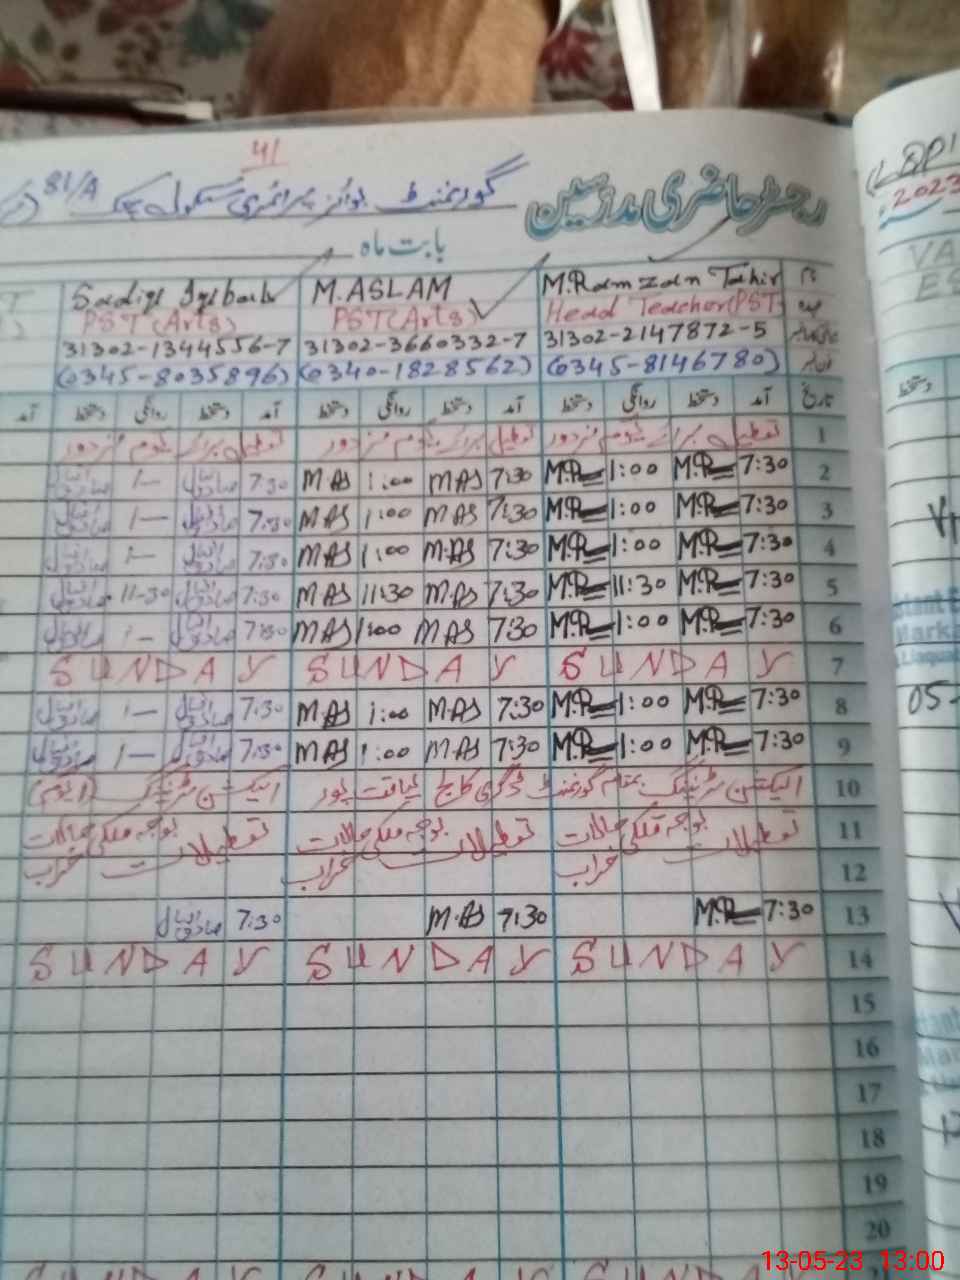 41
رجسٹر حاضری مدرسین گورنمنٹ بوائز پرائمری سکول چک 81/A
بابت ماہ
نام M.Ramzan Tahir M.ASLAM
عہدہ Head Teacher(PST) PST(Arts) PST(Arts)
31302-2147872-5 31302-3660332-7 31302-1344556-7
(0345-8146780) (0340-1828562) (0345-8035896)
تاریخ آمد دستخط روانگی دستخط آمد دستخط روانگی دستخط آمد دستخط روانگی دستخط آمد
1 تعطیل برائے یوم مزدور تعطیل برائے یوم مزدور تعطیل برائے یوم مزدور
2 7:30 M.R 1:00 M.R 7:30 MAS 1:00 MAS 7:30 صادق اقبال 1— صادق اقبال
3 7:30 M.R 1:00 M.R 7:30 MAS 1:00 MAS 7:30 صادق اقبال 1— صادق اقبال
4 7:30 M.R 1:00 M.R 7:30 M.AS 1:00 MAS 7:30 صادق اقبال 1— صادق اقبال
5 7:30 M.R 11:30 M.R 7:30 MAS 11:30 MAS 7:30 صادق اقبال 11-30 صادق اقبال
6 7:30 M.R 1:00 M.R 7:30 MAS 1:00 MAS 7:30 صادق اقبال 1— صادق اقبال
7 SUNDAY SUNDAY SUNDAY
8 7:30 M.R 1:00 M.R 7:30 MAS 1:00 MAS 7:30 صادق اقبال 1— صادق اقبال
9 7:30 M.R 1:00 M.R 7:30 MAS 1:00 MAS 7:30 صادق اقبال 1— صادق اقبال
10 الیکشن ٹریننگ بمقام گورنمنٹ ڈگری کالج لیاقت پور الیکشن ٹریننگ
11 تعطیلات بوجہ ملکی حالات تعطیلات بوجہ ملکی حالات تعطیلات بوجہ ملکی حالات
12 خراب خراب خراب
13 7:30 M.R 7:30 M.AS 7:30 صادق اقبال
14 SUNDAY SUNDAY SUNDAY
15
16
17
18
19
20
2023
05-
13-05-23 13:00